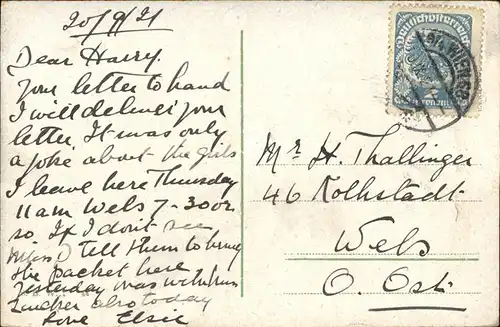 20/9/21
Dear Harry.
your letter to hand
I will deliver your
letter. It was only
a joke about the girls
I leave here Thursday
11am Wels 7-30
so If I don't see
Miss D tell them to bring
the packet here
yesterday was with
also today
Love Elsie
Deutschösterreich
2
Mr H. Thallinger
46 Kolkstadt
Wels
O. Öst.